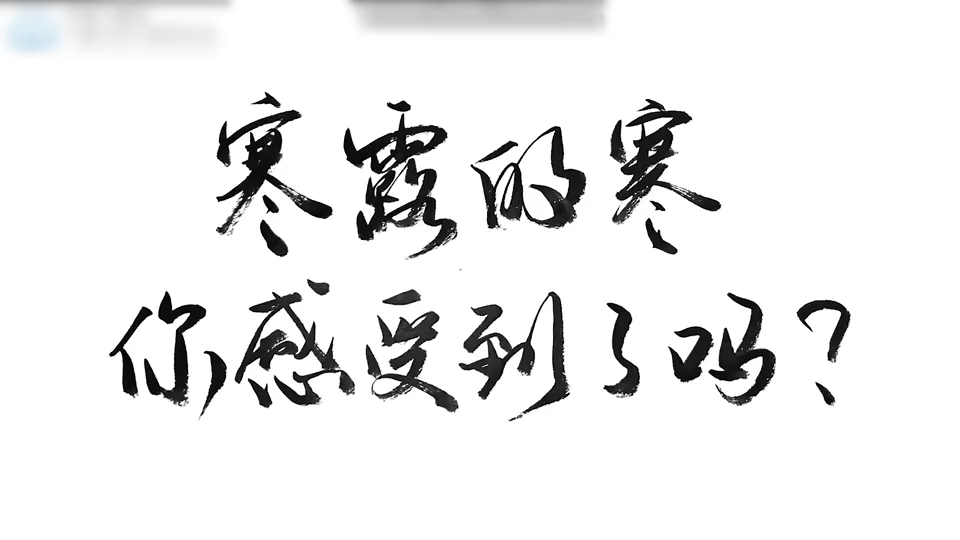 寒露的寒
你感受到了吗？